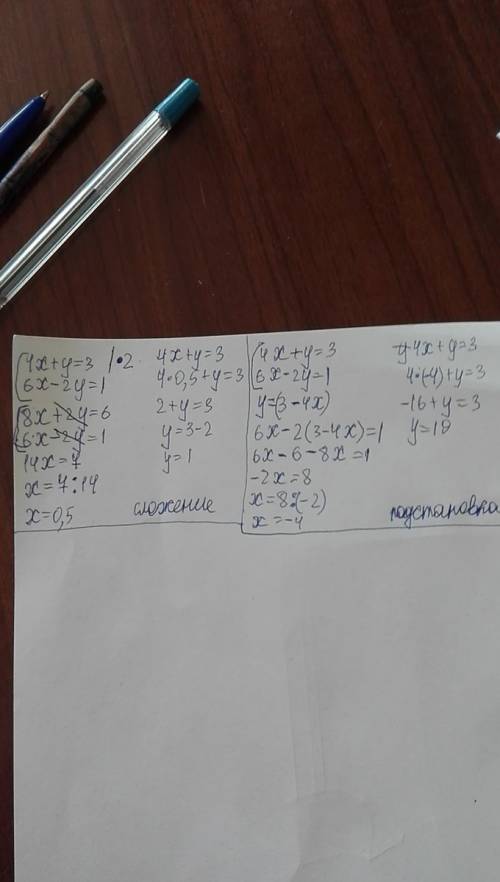 4x+y=3 |•2
6x-2y=1
8x+2y=6
6x-2y=1
14x=7
x=7:14
x=0,5
4x+y=3
4•0,5+y=3
2+y=3
y=3-2
y=1
сложение
4x+y=3
6x-2y=1
y=(3-4x)
6x-2(3-4x)=1
6x-6-8x=1
-2x=8
x=8:(-2)
x=-4
4x+y=3
4•(-4)+y=3
-16+y=3
y=19
подстановка